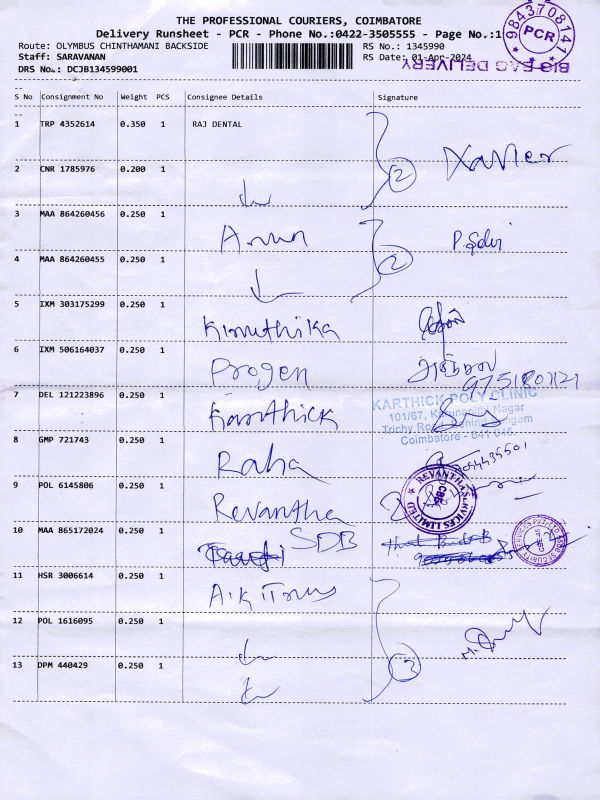 THE PROFESSIONAL COURIERS, COIMBATORE
Delivery Runsheet - PCR - Phone No.:0422-3505555 - Page No.:1
Route: OLYMBUS CHINTHAMANI BACKSIDE RS No.: 1345990
Staff: SARAVANAN RS Date: 01-Apr-2024
DRS No.: DCJB134599001
9843708141
PCR
BIG BAG DELIVERY
S No Consignment No Weight PCS Consignee Details Signature
1 TRP 4352614 0.350 1 RAJ DENTAL
Xavier
2 CNR 1785976 0.200 1 2
3 MAA 864260456 0.250 1 Arun P. Selvi
4 MAA 864260455 0.250 1 2
5 IXM 303175299 0.250 1 Kiruthika
6 IXM 506164037 0.250 1 Progen
9751801121
7 DEL 121223896 0.250 1 Karthick
KARTHICK POLY CLINIC
101/67, Nagar
Trichy Road,
Coimbatore - 641 045.
8 GMP 721743 0.250 1 Raha
9 POL 6145806 0.250 1 Revantha
REVANTHA SERVICES LIMITED
CBE
10 MAA 865172024 0.250 1 SDB
11 HSR 3006614 0.250 1 A.K Trus
12 POL 1616095 0.250 1
13 DPM 440429 0.250 1 3